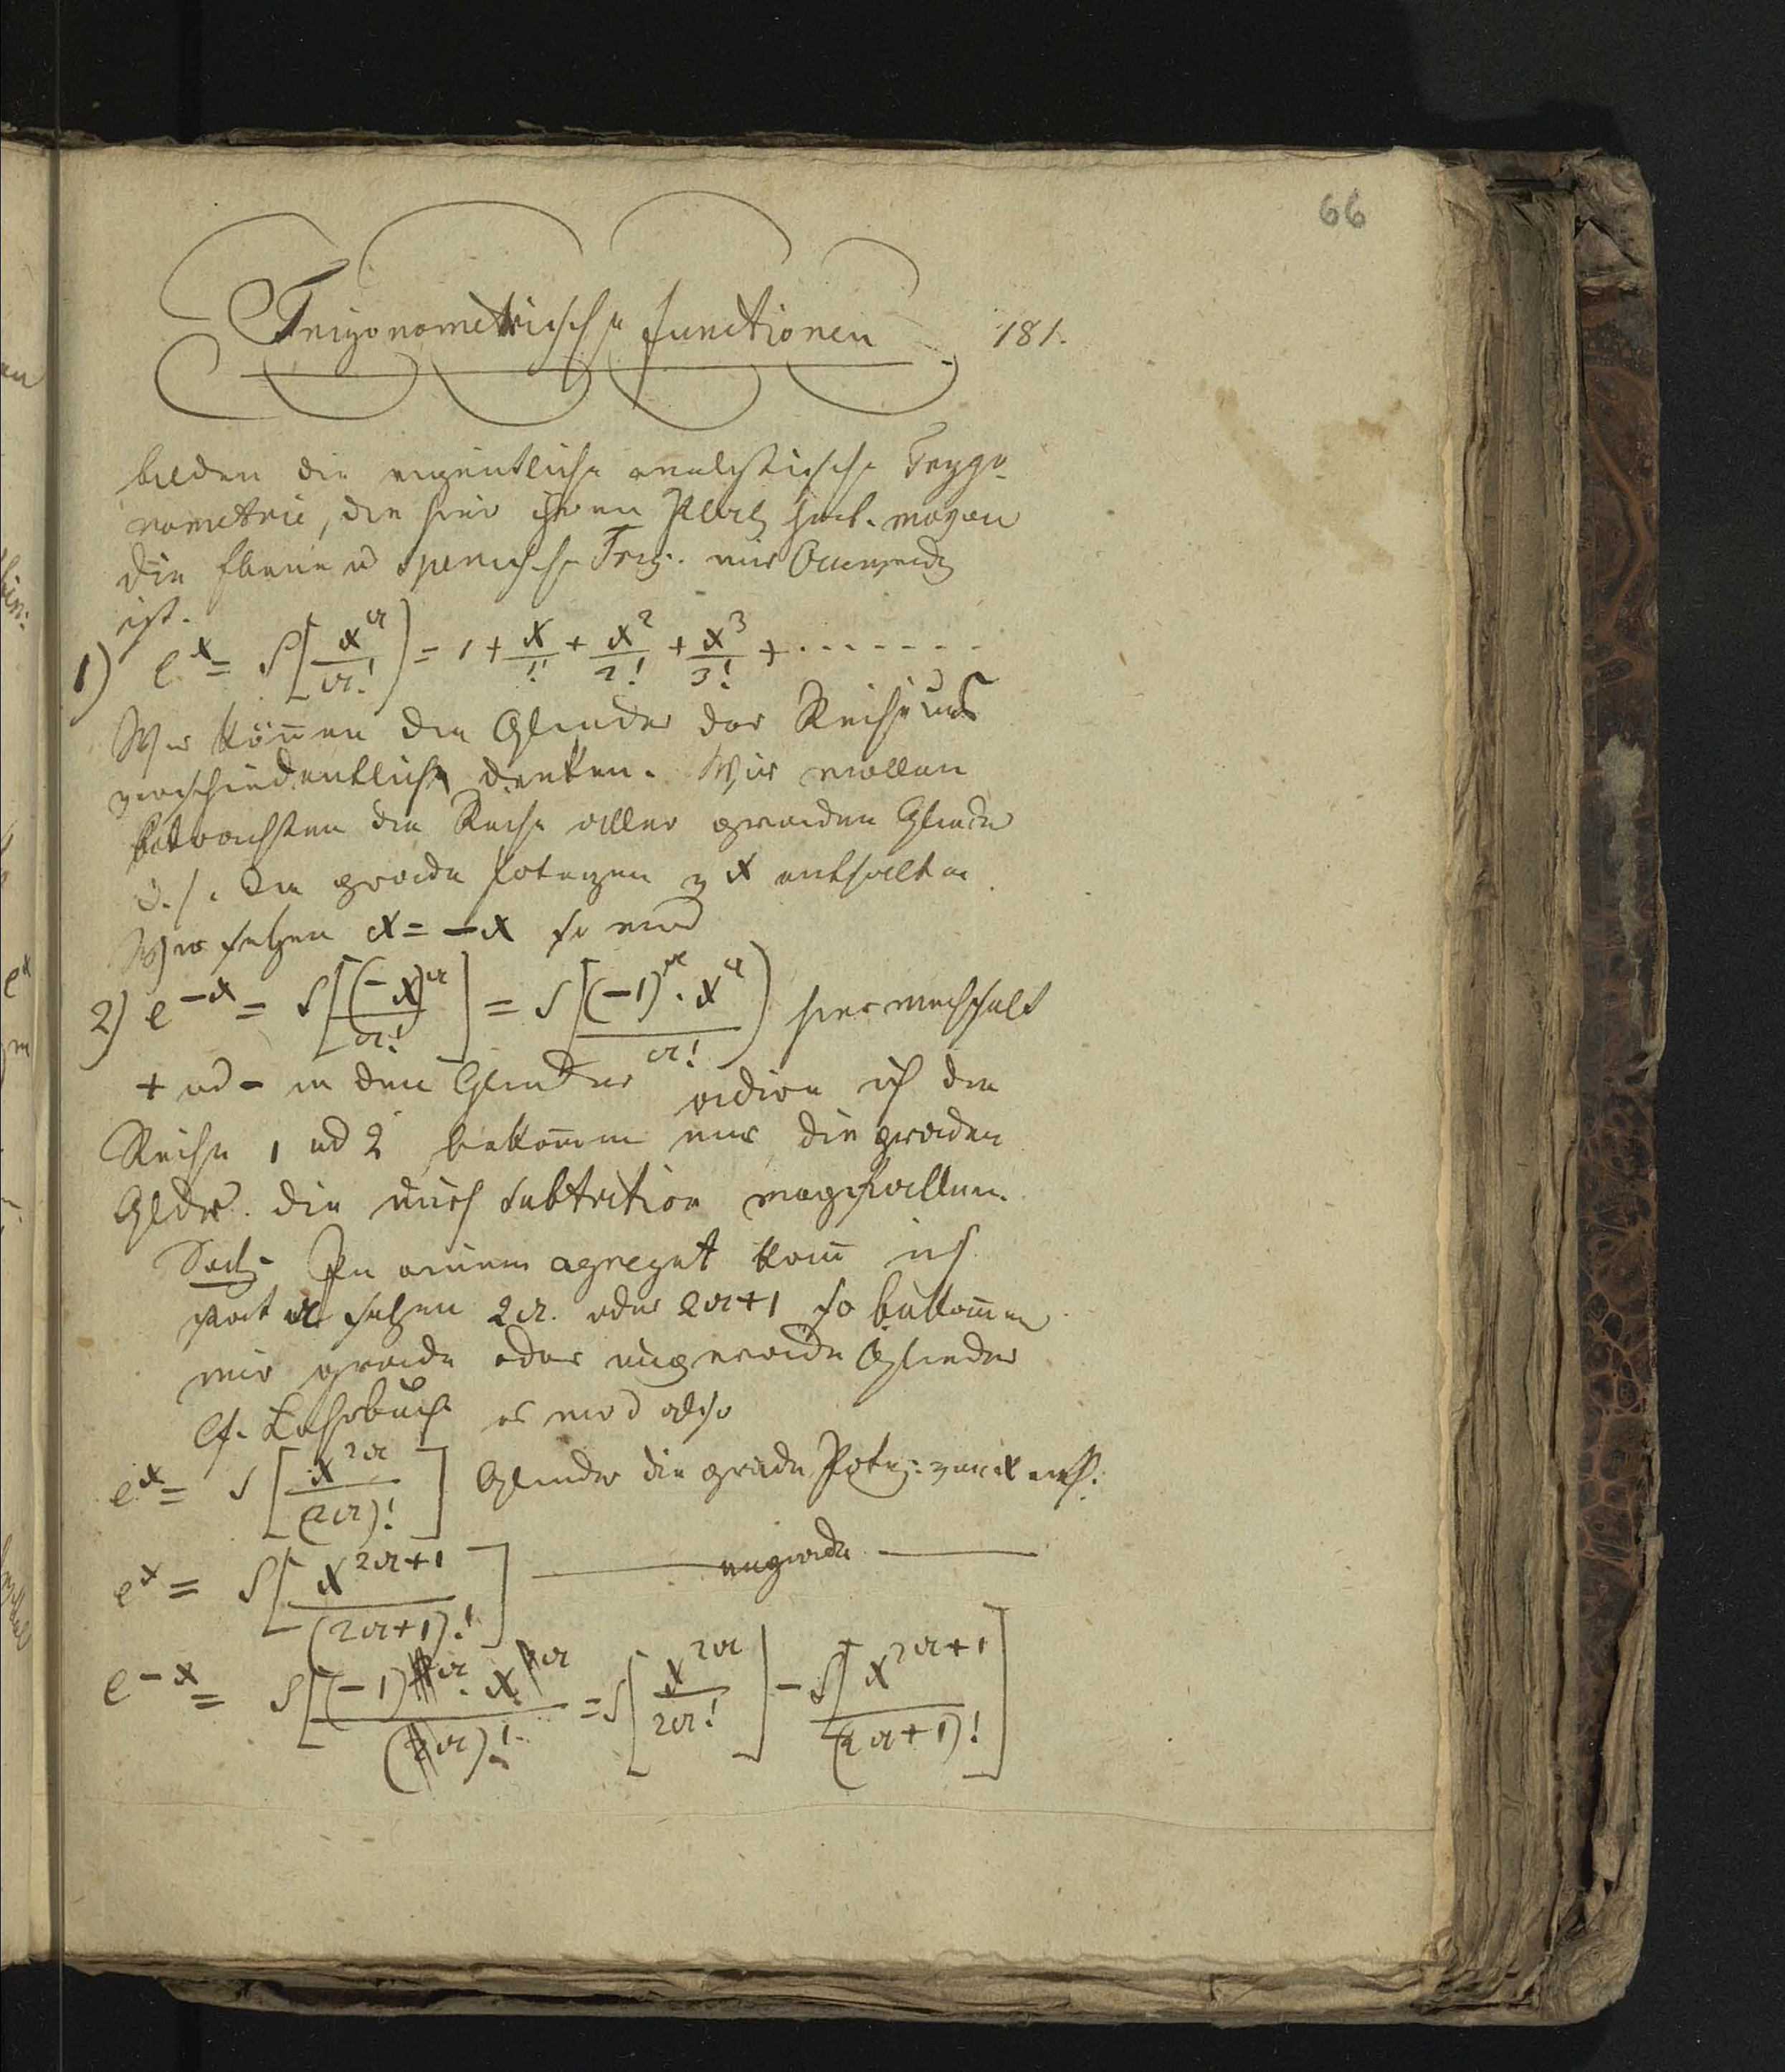 66
Trigonometrische functionen 181.
bilden die eigentliche analytische Trygo-
nometrie, die hier ihren Platz hat. wogen
die Ebene u spherische Trig. nur Anwendg
ist.
1) e^x = S[x^a/a!] = 1 + x/1! + x^2/2! + x^3/3! + .......
Wir können die Glieder der Reihe uns
verschiedentlich denken. Wir wollen
betrachten die Reihe aller graden Glieder
d. h. die grade Potenzen v x enthalten
Wir setzen x = -x so wird
2) e^-x = S[(-x)^a/a!] = S[(-1)^a · x^a/a!] hier wechselt
+ ud - in den Gliedern adire ich die
Reihe 1 ud 2 bekomm nur die graden
Gldr. die durch Subtrition wegfallen.
Satz. In einem agregat kann ich
statt a setzen 2a. oder 2a+1 so bekommen
wir grade oder ungerade Glieder
Cf. Lehrbuch es wird also
e^x = S[x^2a/(2a)!] Glieder die grade Potez: von x enth.
e^x = S[x^2a+1/(2a+1)!] —— ungrade ——
e^-x = S[(-1)^a · x^a/(a)!] = S[x^2a/2a!] - S[x^2a+1/(2a+1)!]